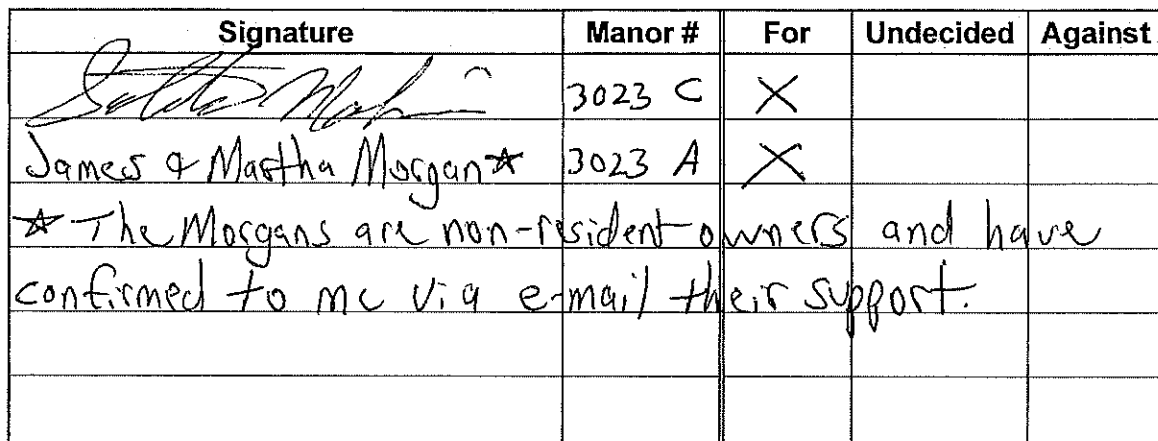 Signature Manor # For Undecided Against
3023 C X
James & Martha Morgan☆ 3023 A X
☆ The Morgans are non-resident owners and have
confirmed to me via e-mail their support.